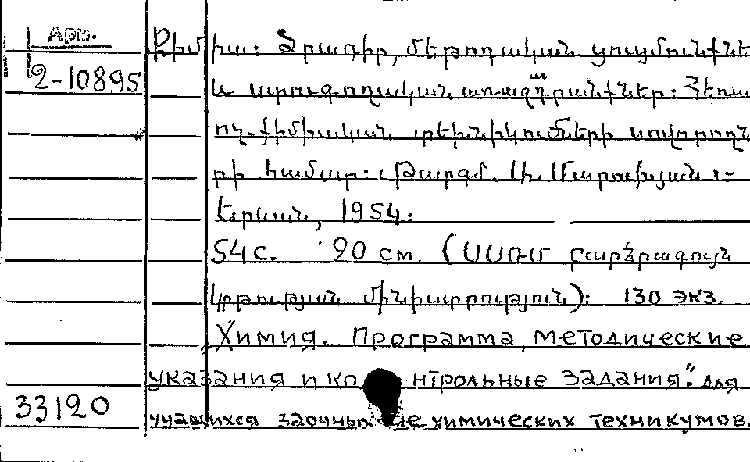 Арм.
2-10895
Քիմիա: Ծրագիր, մեթոդական ցուցմունքնե
և ստուգողական առաջադրանքներ: Հեռա
ող քիմիական տեխնիկումների սովորողն
րի համար: Թարգմ.
Երևան, 1954:
54 с. 20 см. (ՍՍՌՄ բարձրագույն
կրթության մինիստրություն): 130 экз.
Химия. Программа, методические
указания и контрольные задания. для
33120
учащихся заочных химических техникумов.